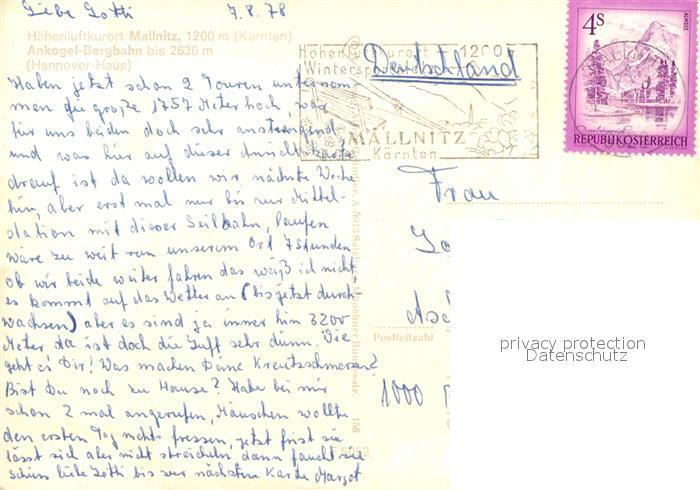 Liebe Lotti 7.8.78
Höhenluftkurort Mallnitz, 1200 m (Kärnten)
Ankogel-Bergbahn bis 2630 m
(Hannover-Haus)
Haben jetzt schon 2 Touren unternom-
men die große 1757 Meter hoch, war
für uns beiden doch sehr anstrengend
und was hier auf dieser Ansichtskarte
drauf ist da wollen wir nächste Woche
hin, aber erst mal nur bis zur Mittel-
station mit dieser Seilbahn, laufen
wäre zu weit von unserem Ort 7 Stunden
ob wir beide weiter fahren das weiß ich nicht
es kommt auf das Wetter an (bis jetzt durch-
wachsen) aber es sind ja immer hin 3200
Meter da ist doch die Luft sehr dünn. Wie
geht es Dir! Was machen Deine Kreutzschmerzen?
Bist Du noch zu Hause? Habe bei mir
schon 2 mal angerufen, Mäuschen wollte
den ersten Tag nichts fressen, jetzt frist sie
lässt sich aber nicht streicheln dann faucht sie
Schüss liebe Lotti bis zur nächsten Karte Margot
Höhenluftkurort 1200
Deutschland
MALLNITZ
Kärnten
4 S
REPUBLIK ÖSTERREICH
Frau
Lo
Postleitzahl
1000
158
privacy protection
Datenschutz